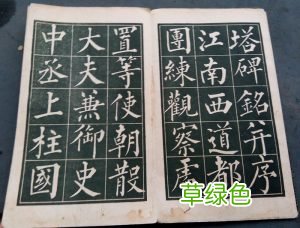 塔碑銘并序
江南西道都
團練觀察處
置等使朝散
大夫兼御史
中丞上柱國
草绿色